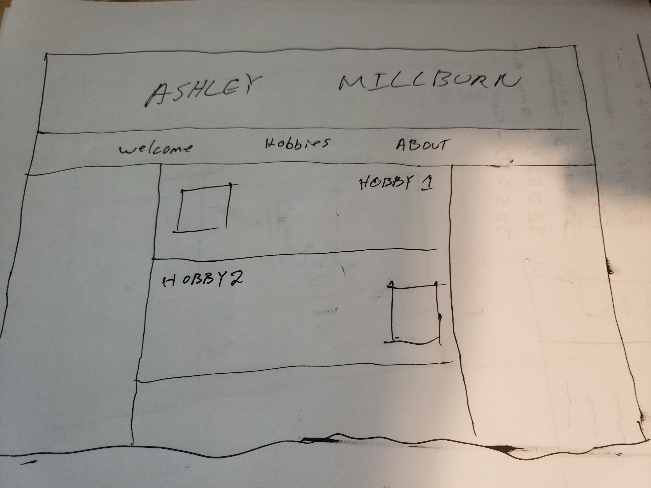 ASHLEY MILLBURN
Welcome Hobbies ABOUT
HOBBY 1
HOBBY 2